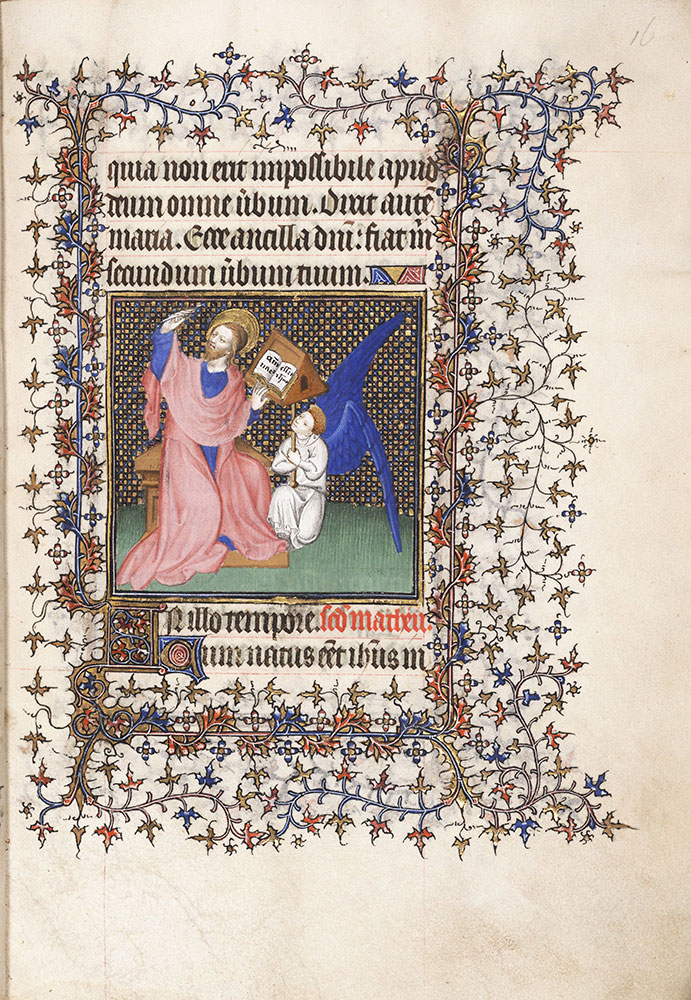 16
quia non erit impossibile apud
deum omne űbum. Dixit autē
maria. Ecce ancilla dñi: fiat m̄
secundum űbum tuum.
In illo tempore. scđs matheu
Cum natus eēt ihūs in